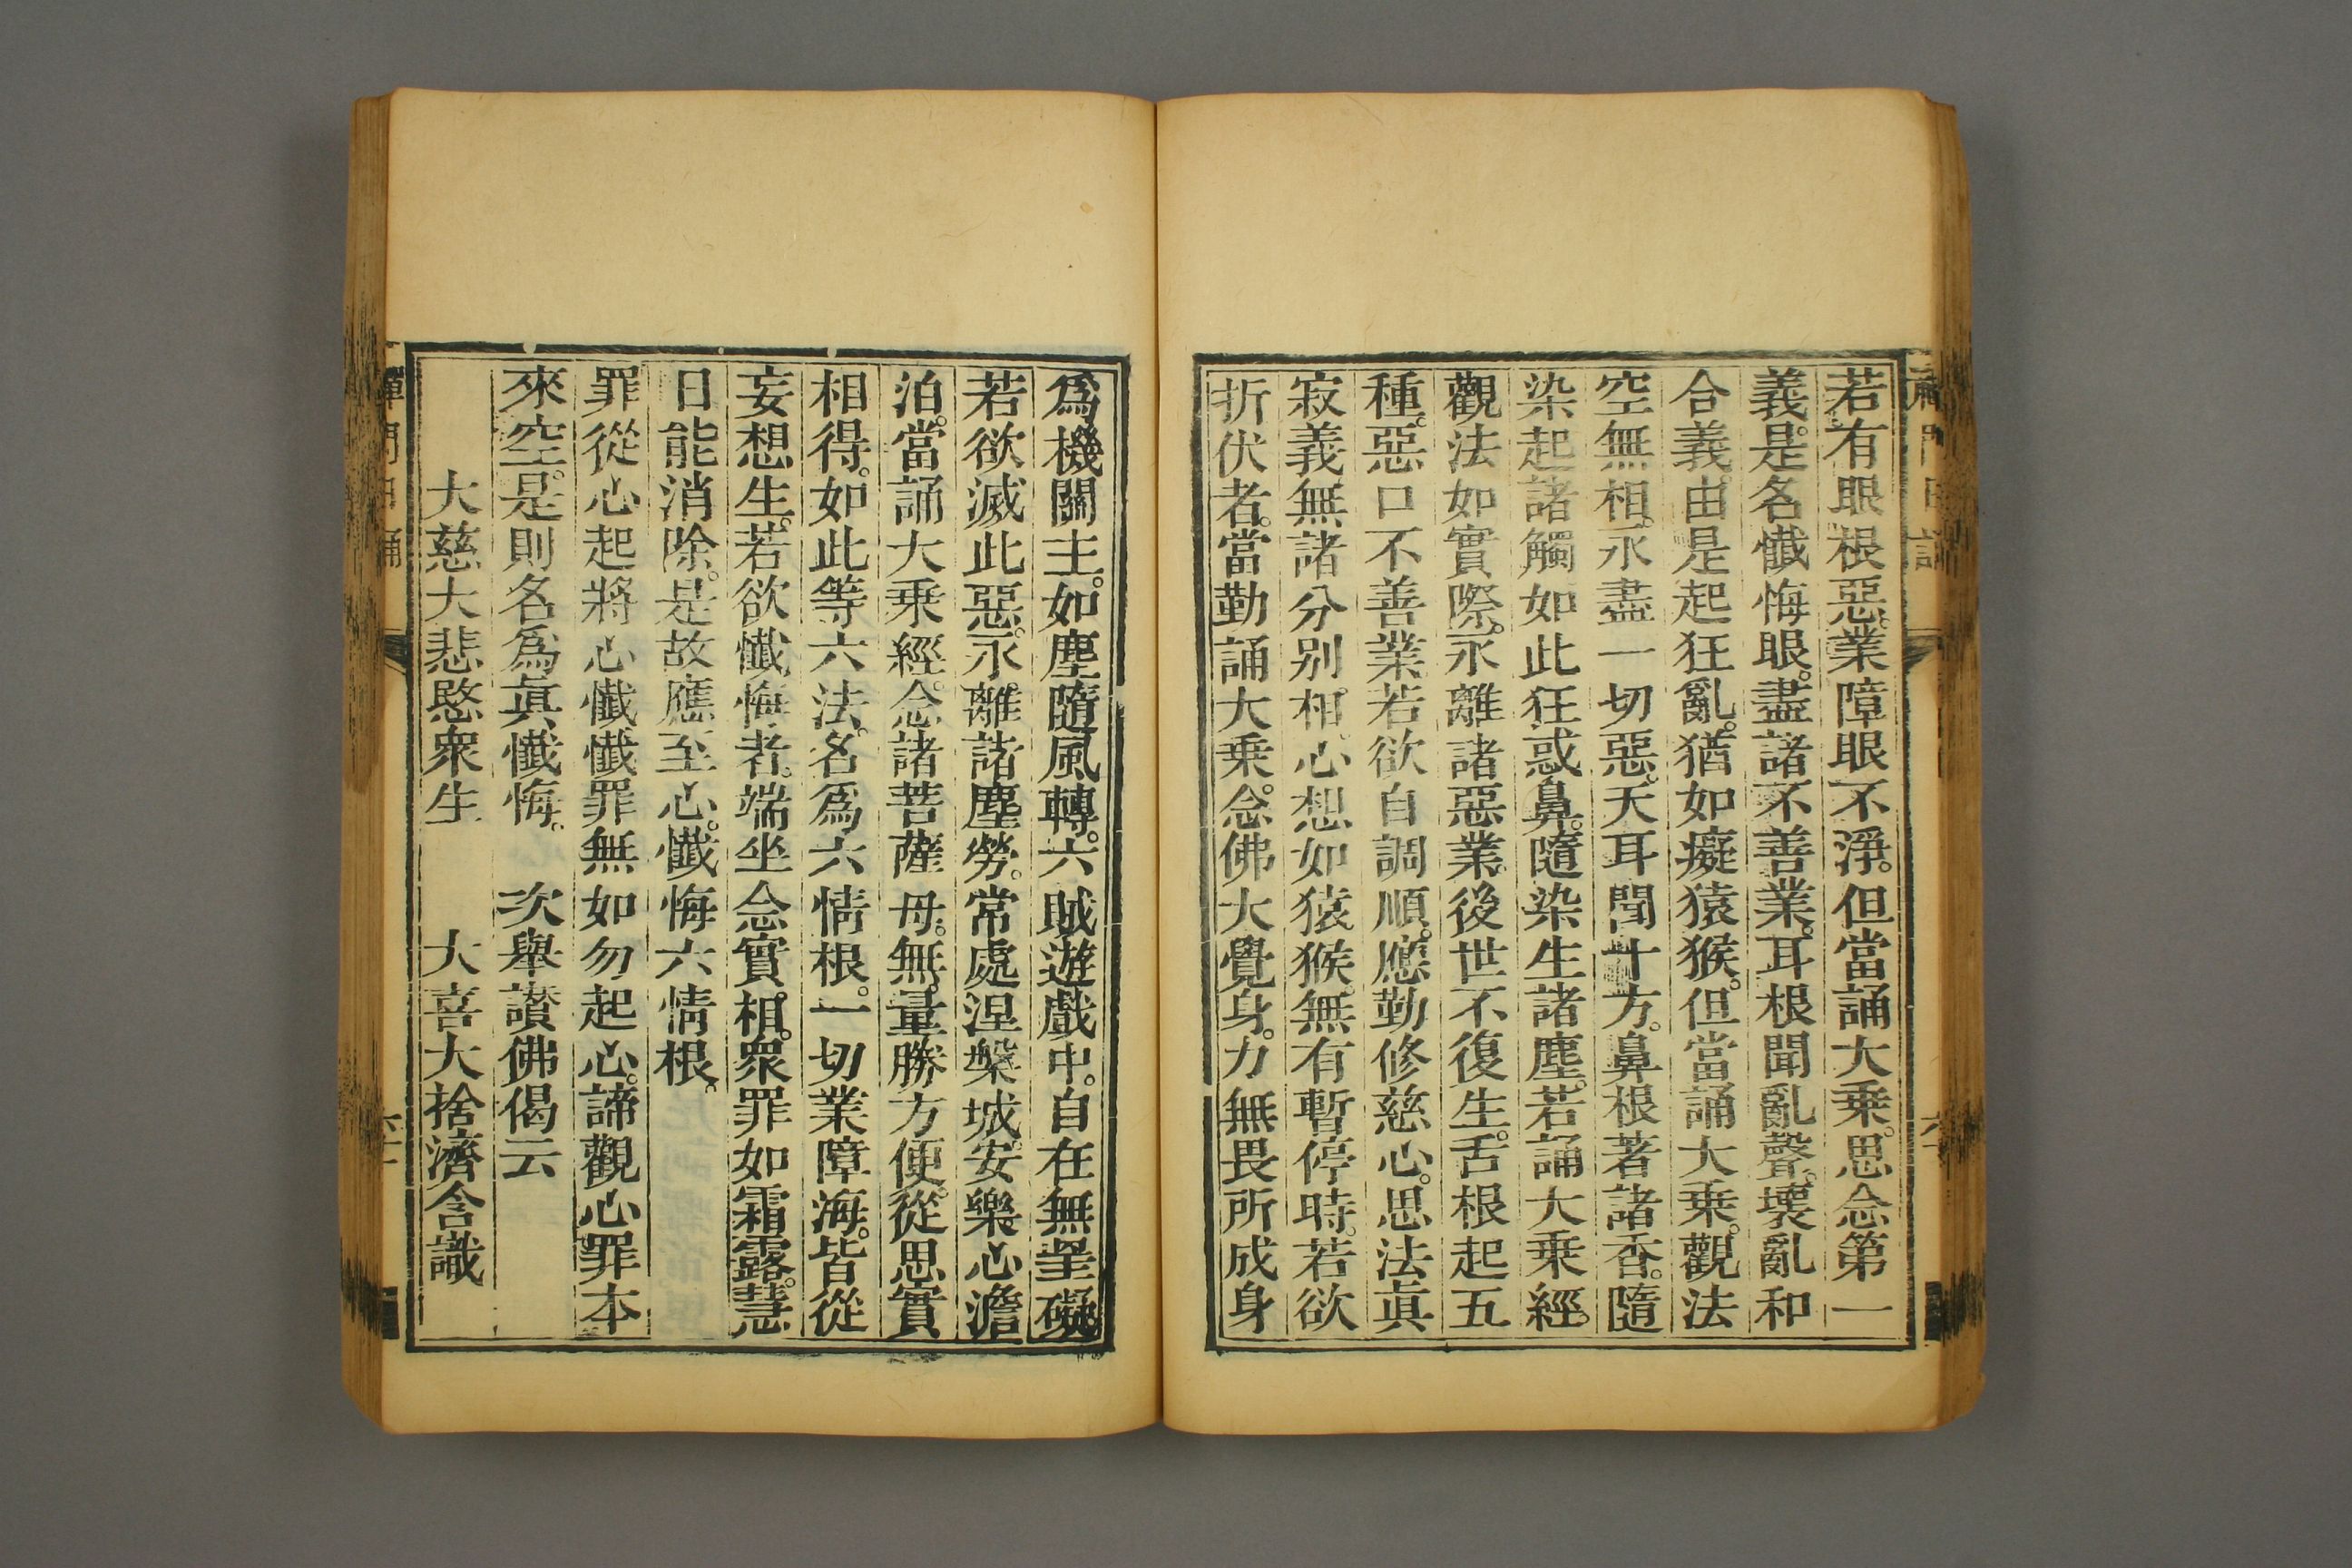 若有眼根惡。業障眼不淨。但當誦大乘。思念第一
義。是名懺悔眼。盡諸不善業。耳根聞亂聲。壞亂和
合義。由是起狂亂。猶如癡猿猴。但當誦大乘。觀法
空無相。永盡一切惡。天耳聞十方。鼻根著諸香。隨
染起諸觸如此狂惑鼻。隨染生諸塵。若誦大乘經。
觀法如實際。永離諸惡業。後世不復生。舌根起五
種。惡口不善業若欲自調順。應勤修慈心。思法真
寂義無諸分別相。心想如猿猴。無有暫停時。若欲
折伏者。當勤誦大乘。念佛大覺身。力無畏所成身
爲機關主。如塵隨風轉。六賊遊戲中。自在無罣礙。
若欲滅此惡。永離諸塵勞。常處涅槃城。安樂心澹
泊。當誦大乘經。念諸菩薩母。無量勝方便。從思實
相得。如此等六法。名爲六情根。一切業障海。皆從
妄想生。若欲懺悔者。端坐念實相。眾罪如霜露。慧
日能消除。是故應至心。懺悔六情根。
罪從心起將心懺懺罪無如勿起心。諦觀心罪本
來空。是則名爲眞懺悔。　次舉讚佛偈云
大慈大悲愍眾生　大喜大捨濟含識
禪門日誦